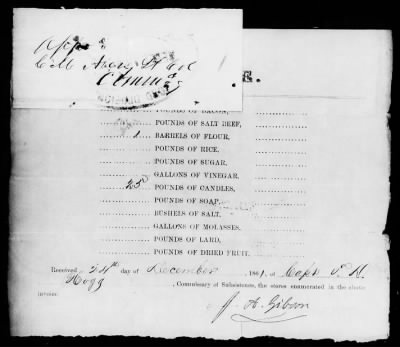 R.
POUNDS OF BACON,
POUNDS OF SALT BEEF,
1 BARRELS OF FLOUR,
POUNDS OF RICE,
POUNDS OF SUGAR,
GALLONS OF VINEGAR,
25 POUNDS OF CANDLES,
POUNDS OF SOAP,
BUSHELS OF SALT,
GALLONS OF MOLASSES,
POUNDS OF LARD,
POUNDS OF DRIED FRUIT.
Received 24th day of December 1861, of Capt
Hogg, Commissary of Subsistence, the stores enumerated in the above
invoice.
J. A. Gibson